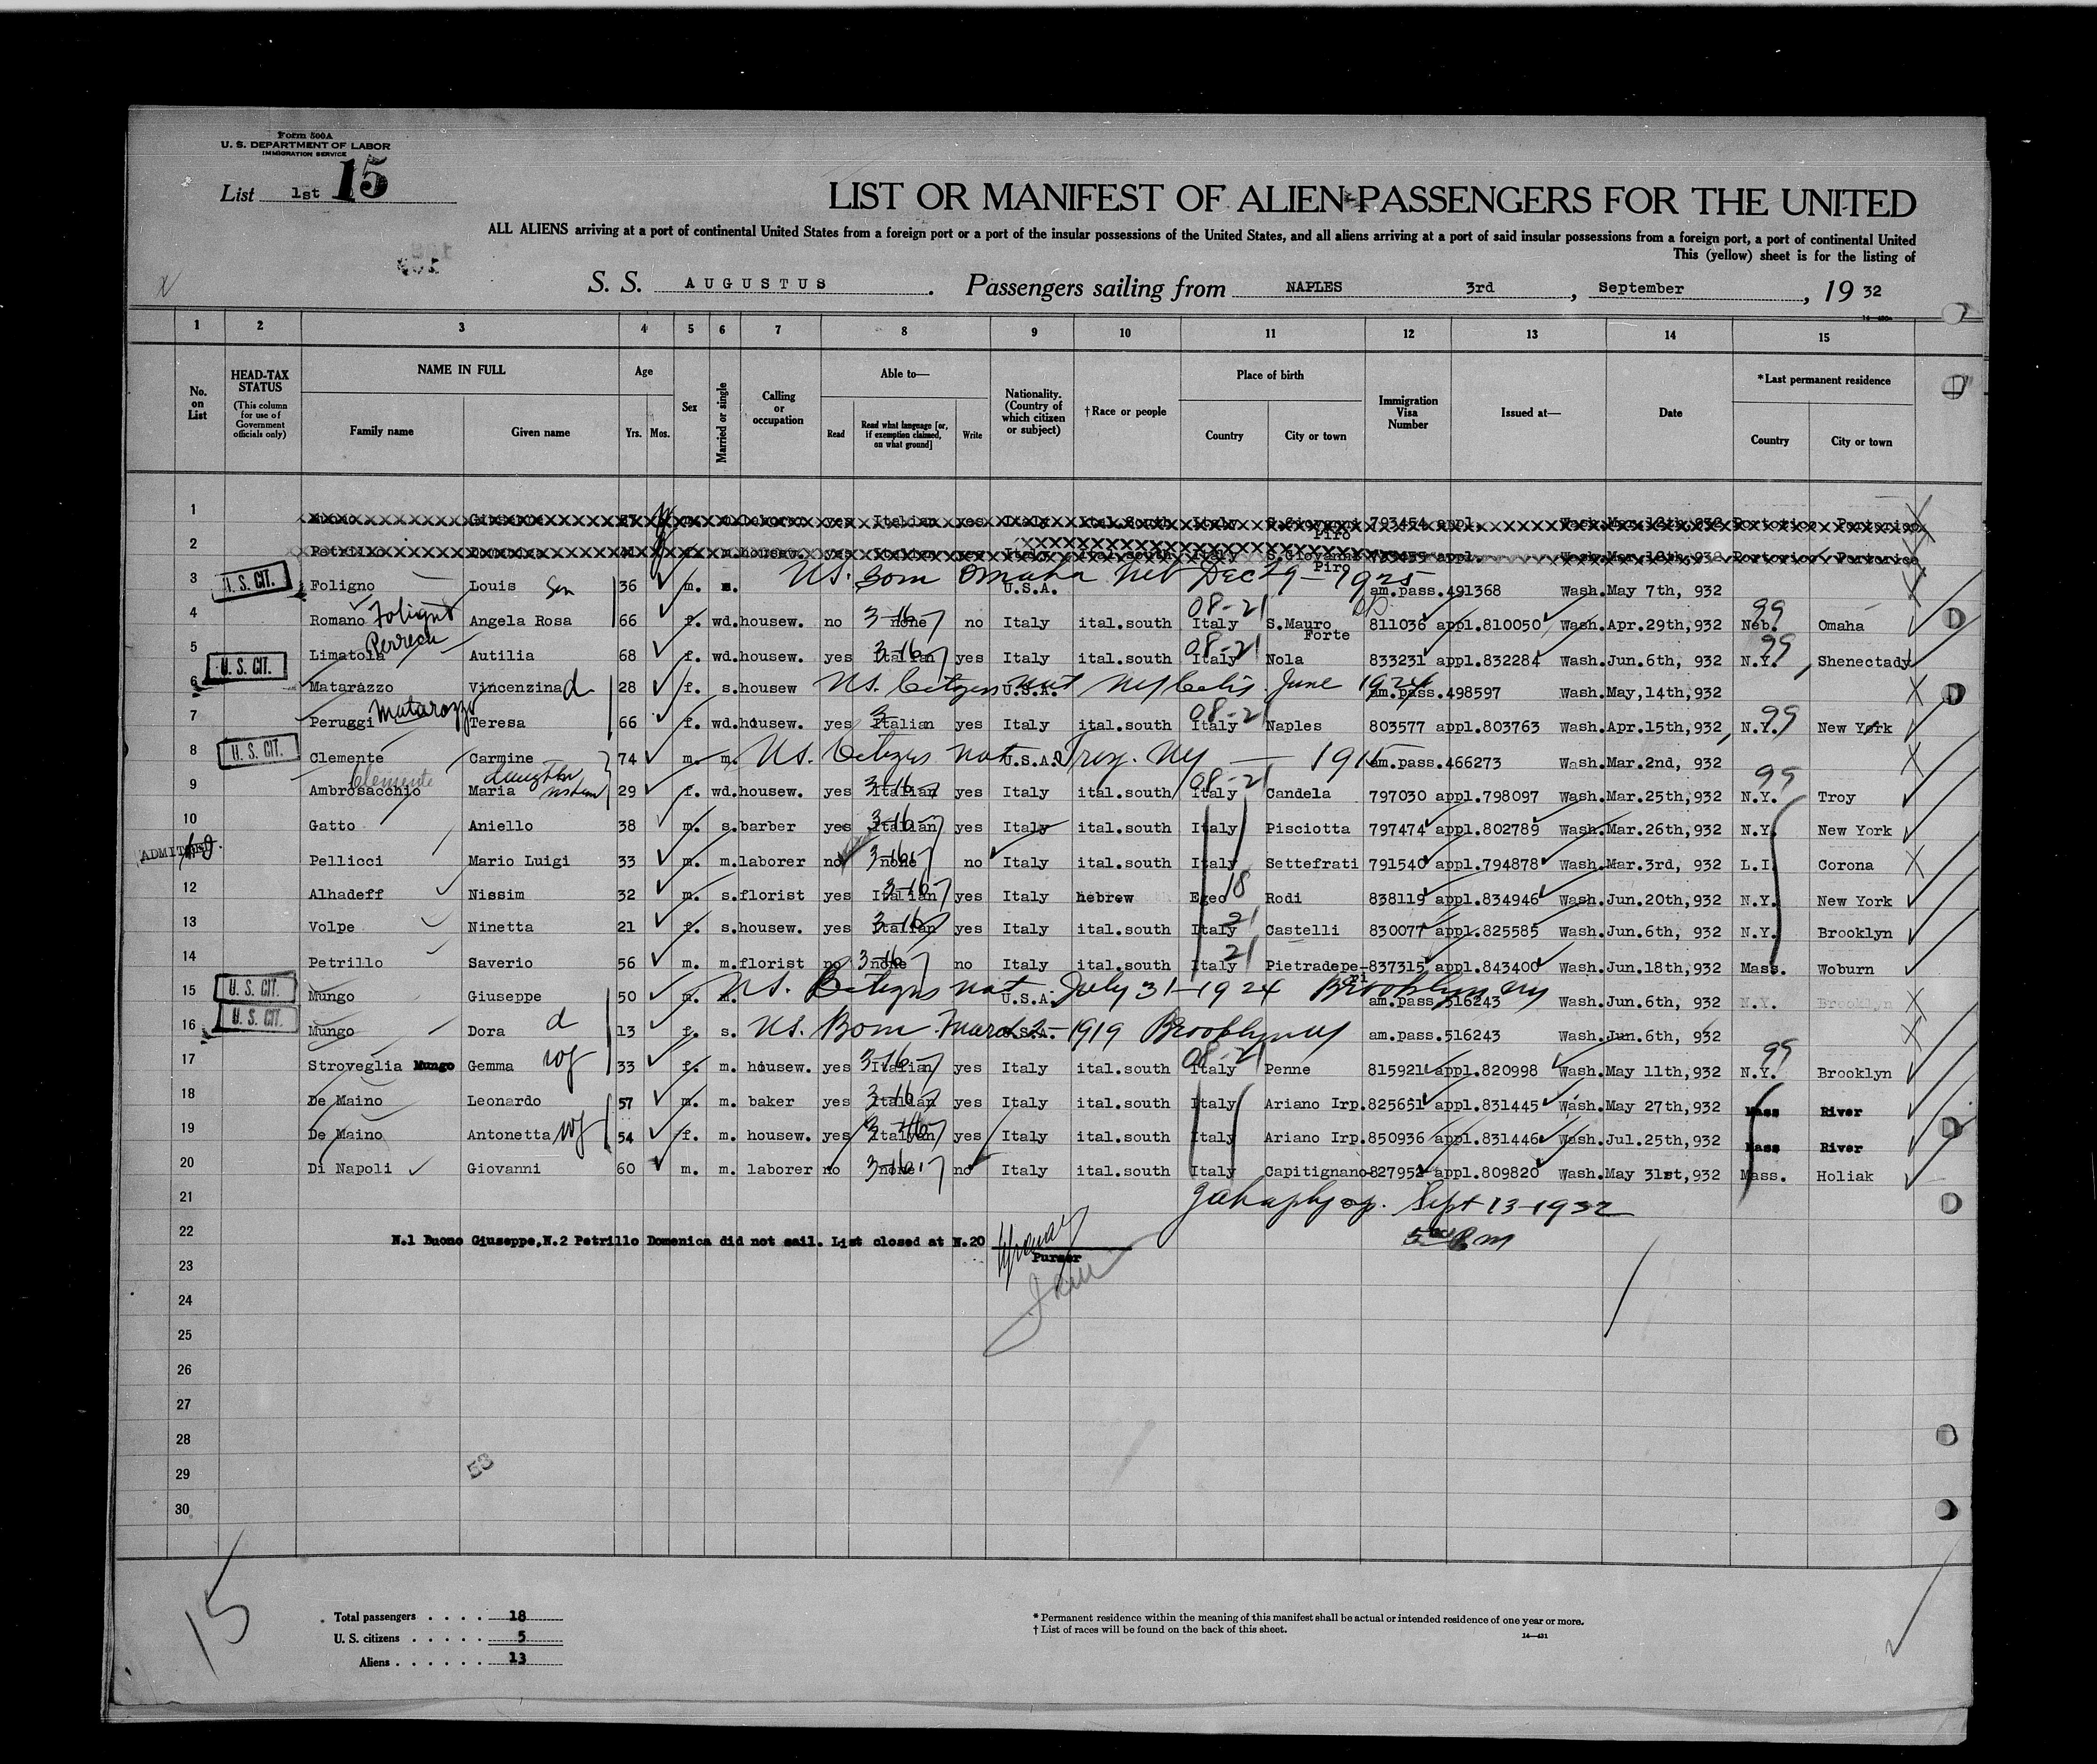 Form 500A
U. S. DEPARTMENT OF LABOR
IMMIGRATION SERVICE
List 1st 15
LIST OR MANIFEST OF ALIEN PASSENGERS FOR THE UNITED
ALL ALIENS arriving at a port of continental United States from a foreign port or a port of the insular possessions of the United States, and all aliens arriving at a port of said insular possessions from a foreign port, a port of continental United
This (yellow) sheet is for the listing of
S. S. AUGUSTUS. Passengers sailing from NAPLES 3rd, September, 19 32
1 2 3 4 5 6 7 8 9 10 11 12 13 14 15
No. on List
HEAD-TAX STATUS (This column for use of Government officials only)
NAME IN FULL Family name Given name
Age Yrs. Mos.
Sex
Married or single
Calling or occupation
Able to— Read Read what language [or, if exemption claimed, on what ground] Write
Nationality. (Country of which citizen or subject)
† Race or people
Place of birth Country City or town
Immigration Visa Number
Issued at—
Date
*Last permanent residence Country City or town
1 Giuseppe laborer yes Italian yes Italy Ital.South Italy S.Giovanni Piro 793454 appl. Wash. Mar.12th,932 Portorico Portorico
2 Petrillo Domenica m. housew. yes Italian Italy Ital.south Italy S.Giovanni Piro appl. Wash. Mar. 932 Portorico Portorico
3 U. S. CIT. Foligno Louis 36 m. U.S. Born Omaha Neb Dec 29-1925 U.S.A. am.pass.491368 Wash. May 7th, 932
4 Romano Foligno Angela Rosa 66 f. wd. housew. no 3-16 none no Italy ital.south 08-21 Italy S.Mauro Forte 811036 appl.810050 Wash. Apr.29th,932 99 Neb. Omaha
5 Limatola Autilia 68 f. wd. housew. yes 3-16 Italian yes Italy ital.south 08-21 Italy Nola 833231 appl.832284 Wash. Jun.6th, 932 99 N.Y. Shenectady
6 U. S. CIT. Matarazzo Vincenzina d 28 f. s. housew U.S. Citizen nat U.S.A. June 1924 am.pass.498597 Wash. May,14th,932
7 Peruggi Matarozzo Teresa 66 f. wd. housew. yes Italian yes Italy ital.south 08-21 Italy Naples 803577 appl.803763 Wash. Apr.15th,932 99 N.Y. New York
8 U. S. CIT. Clemente Carmine 74 m. m. U.S. Citizen nat U.S.A. Troy. NY — 1915 am.pass.466273 Wash. Mar.2nd, 932
9 Ambrosacchio Clemente Maria daughter 29 f. wd. housew. yes 3-16 Italian yes Italy ital.south 08-21 Italy Candela 797030 appl.798097 Wash. Mar.25th,932 99 N.Y. Troy
10 Gatto Aniello 38 m. s. barber yes 3-16 Italian yes Italy ital.south Italy Pisciotta 797474 appl.802789 Wash. Mar.26th,932 N.Y. New York
ADMITTED Pellicci Mario Luigi 33 m. m. laborer no 3-16 none no Italy ital.south Italy Settefrati 791540 appl.794878 Wash. Mar.3rd, 932 L.I. Corona
12 Alhadeff Nissim 32 m. s. florist yes 3-16 Italian yes Italy hebrew Egeo 18 Rodi 838119 appl.834946 Wash. Jun.20th,932 N.Y. New York
13 Volpe Ninetta 21 f. s. housew. yes 3-16 Italian yes Italy ital.south Italy 21 Castelli 830077 appl.825585 Wash. Jun.6th, 932 N.Y. Brooklyn
14 Petrillo Saverio 56 m. m. florist no 3-16 none no Italy ital.south Italy 21 Pietradepe-pi 837315 appl.843400 Wash. Jun.18th,932 Mass. Woburn
15 U. S. CIT. Mungo Giuseppe 50 m. m. U.S. Citizen nat U.S.A. July 31-1924 Brooklyn Ny am.pass.516243 Wash. Jun.6th, 932 N.Y. Brooklyn
16 U. S. CIT. Mungo Dora d 13 f. s. U.S. Born March 2-1919 Brooklyn ny am.pass.516243 Wash. Jun.6th, 932
17 Stroveglia Mungo Gemma wf 33 f. m. housew. yes 3-16 Italian yes Italy ital.south 08-21 Italy Penne 815921 appl.820998 Wash. May 11th,932 99 N.Y. Brooklyn
18 De Maino Leonardo 57 m. m. baker yes 3-16 Italian yes Italy ital.south Italy Ariano Irp. 825651 appl.831445 Wash. May 27th,932 Mass River
19 De Maino Antonetta wf 54 f. m. housew. yes 3-16 Italian yes Italy ital.south Italy Ariano Irp. 850936 appl.831446 Wash. Jul.25th,932 Mass River
20 Di Napoli Giovanni 60 m. m. laborer no 3-16 none no Italy ital.south Italy Capitignano 827952 appl.809820 Wash. May 31st,932 Mass. Holiak
21 Sept 13-1932
22 N.1 Buono Giuseppe,N.2 Petrillo Domenica did not sail. List closed at N.20
Purser
23
24
25
26
27
28
29
30
53
15
Total passengers . . . . 18
U. S. citizens . . . . . 5
Aliens . . . . . . 13
* Permanent residence within the meaning of this manifest shall be actual or intended residence of one year or more.
† List of races will be found on the back of this sheet.
14—431